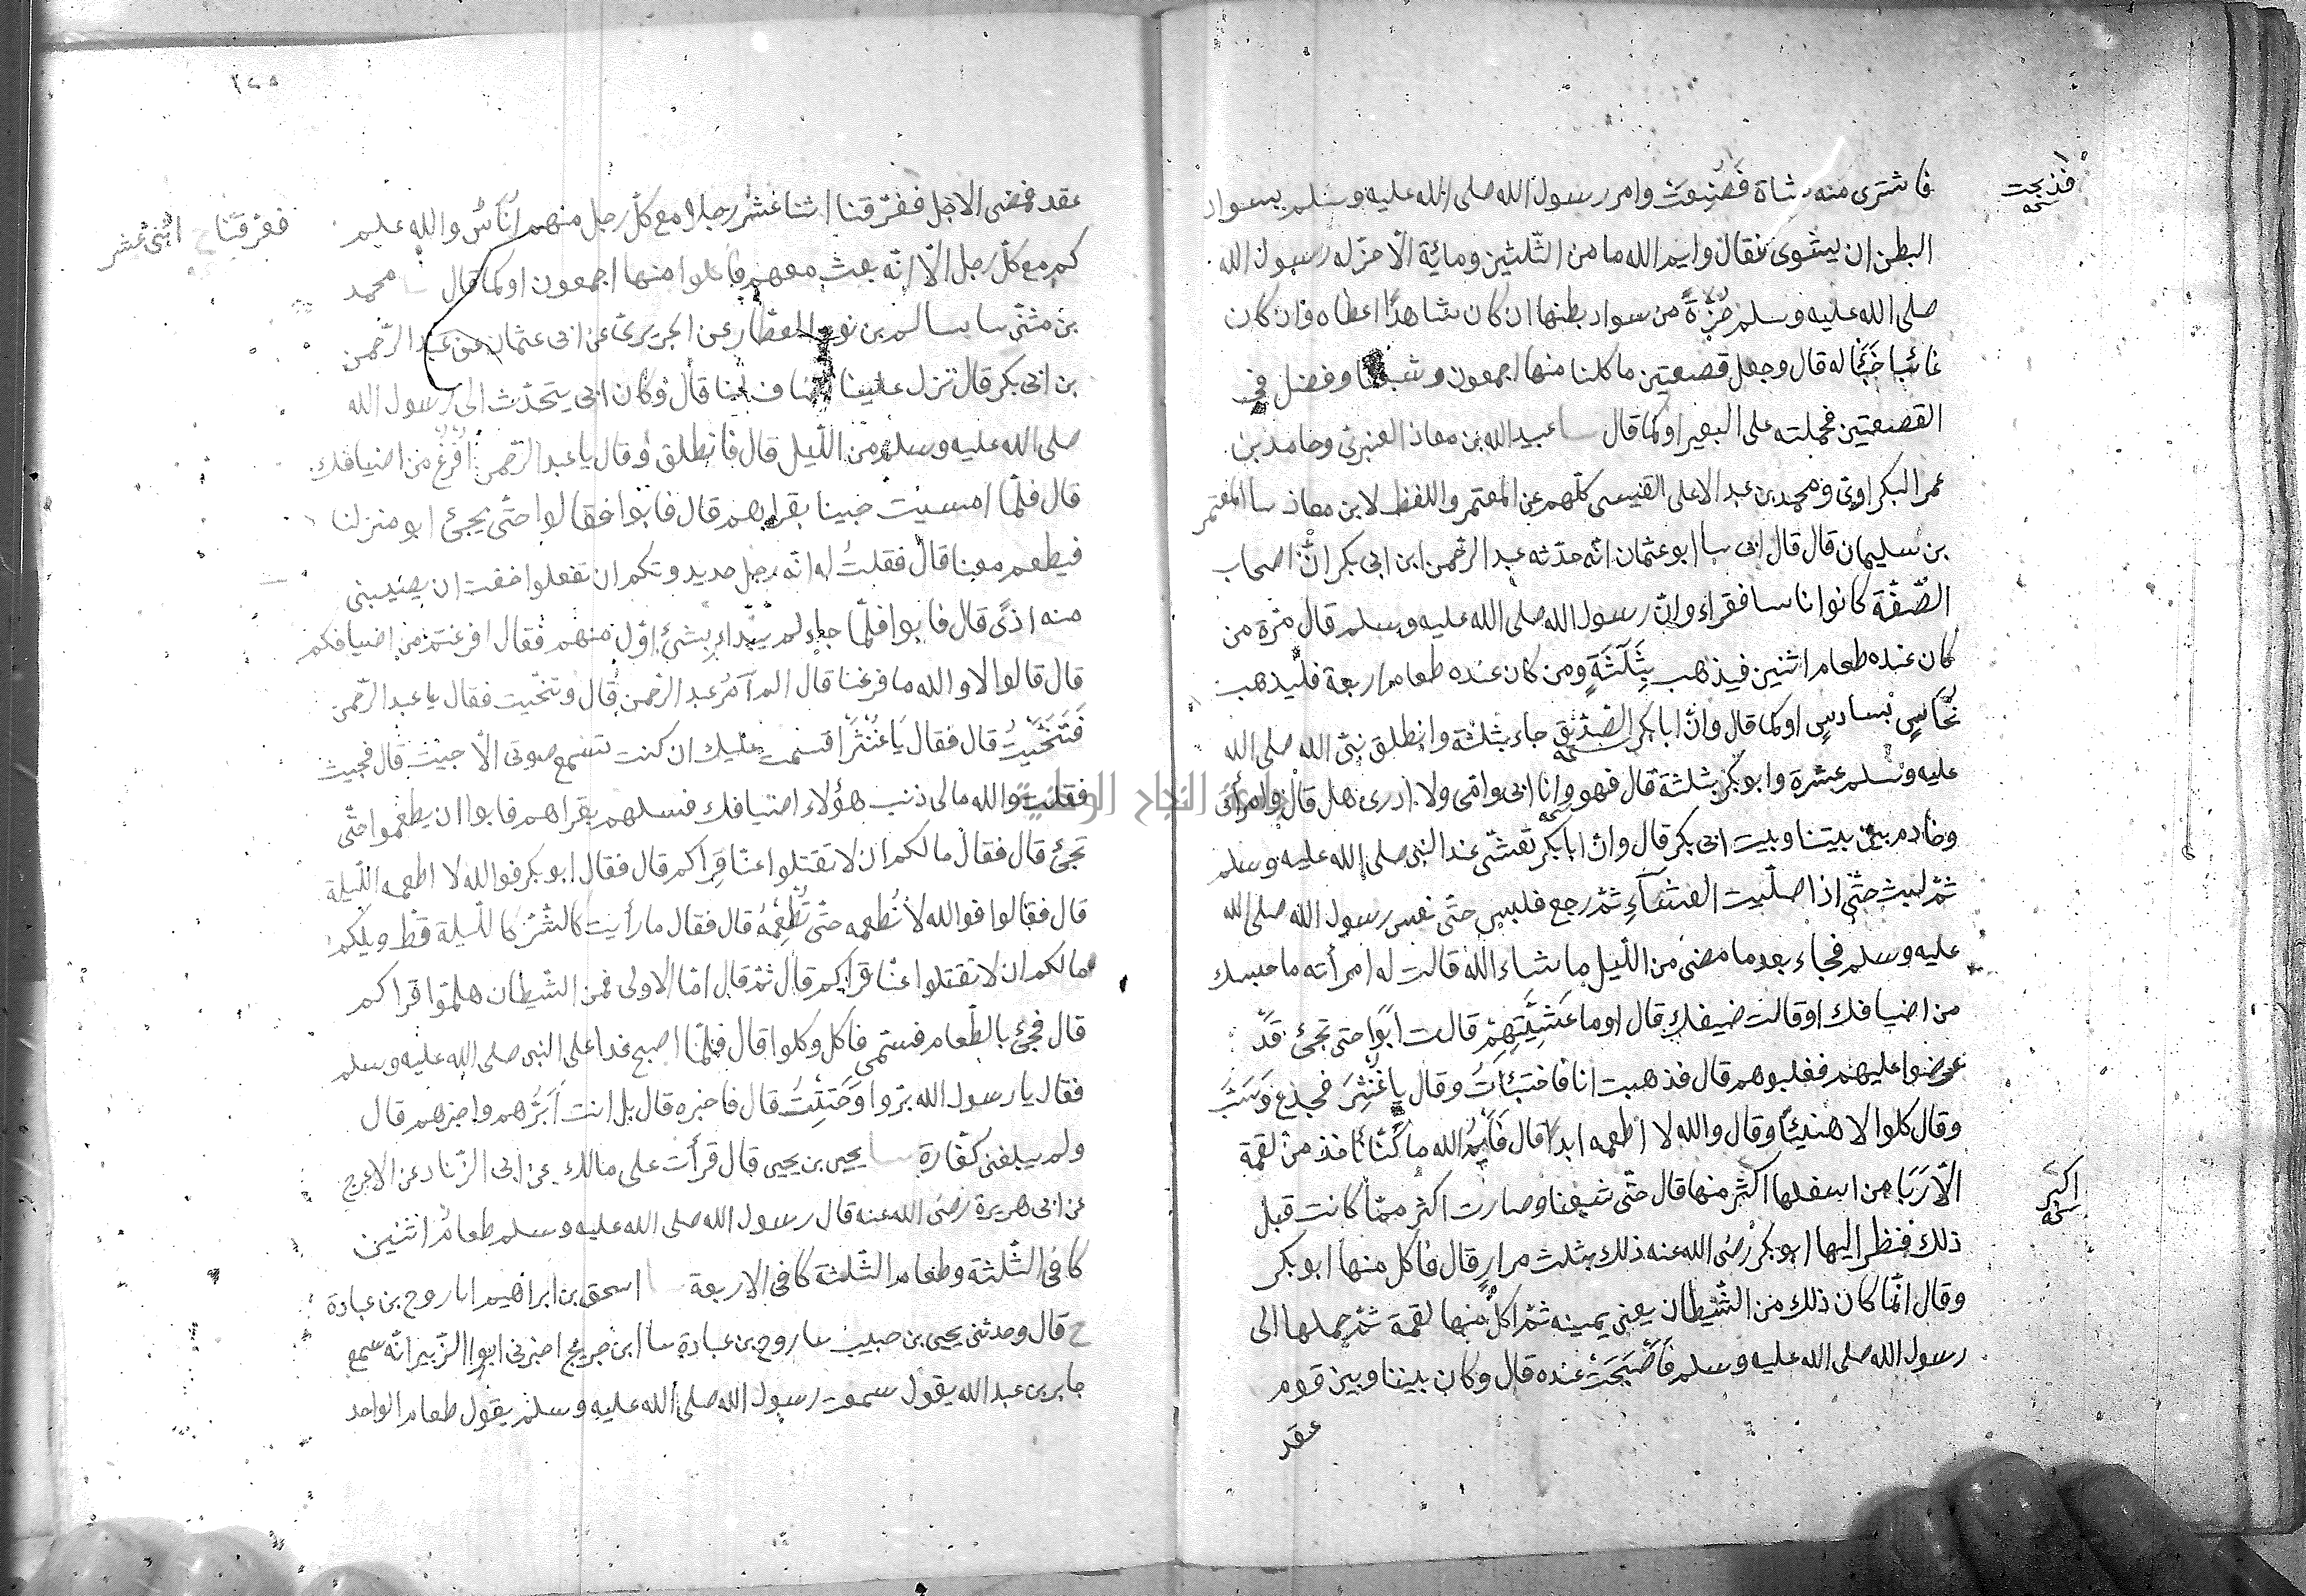 فاشترى منه شاة فَصُنِعَتْ وامر رسول الله صلى الله عليه وسلم بسواد
البطن ان يشوى فقال وايم الله ما من الثلثين ومائة الا حزّ له رسول الله
صلى الله عليه وسلم حُزّةً من سواد بطنها ان كان شاهدًا اعطاه وان كان
غائبا خَبَأ له قال وجعل قصعتين فاكلنا منها اجمعون وشبعنا وفضل في
القصعتين فحملته على البعير او كما قال سا عبيد الله بن معاذ العنبرى وحامد بن
عمر البكراوى ومحمد بن عبد الاعلى القيسى كلهم عن المعتمر واللفظ لابن معاذ سا المعتمر
بن سليمان قال قال ابى سا ابو عثمان انه حدثه عبد الرحمن ابن ابى بكر انّ اصحاب
الصّفّة كانوا ناسا فقراء وانّ رسول الله صلى الله عليه وسلم قال مرة من
كان عنده طعام اثنين فيذهب بِثَلَثَةٍ ومن كان عنده طعام اربعة فليذهب
بخامسٍ بسادسٍ او كما قال وانّ ابا بكر الصّدّيق جاء بثلثة وانطلق نبىّ الله صلى الله
عليه وسلم بعشرة وابو بكر بثلثة قال فهو وانا ابى وامى ولا ادرى هل قال وامرأتى
وخادم بين بيتنا وبيت ابى بكر قال وانّ ابا بكر تعشّى عند النبى صلى الله عليه وسلم
ثم لبث حتّى اذا صلّيت العشآءِ ثم رجع فلبس حتى نعس رسول الله صلى الله
عليه وسلم فجاء بعد ما مضى من الليل ما شاء الله قالت له امرأته ما حبسك
من اضيافك او قالت ضيفك قال اوما عَشَّيْتِهِمْ قالت ابَوْا حتى تجئ قَدْ
عرضوا عليهم فغلبوهم قال فذهبت انا فاختبَأتُ وقال يا غُنْثَرَ فجدّع وَسَبَّ
وقال كلوا لا هنيئًا وقال والله لا اطعمه ابدًا قال فَأَيْمُ الله ما كُنّا نأخذ من لقمة
الّا رَبَا من اسفلها اكثر منها قال حتّى شبعنا وصارت اكثر ممّا كانت قبل
ذلك فنظر اليها ابو بكر رضى الله عنه ذلك بثلث مرارٍ قال فاكل منها ابو بكر
وقال انّما كان ذلك من الشّيطان يعنى يمينه ثم اكل منها لقمة ثم حملها الى
رسول الله صلى الله عليه وسلم فَأَصْبَحَتْ عنده قال وكان بيننا وبين قوم
عقد
فذبحت
اكبر
عقد فمضى الاجل ففرّقنا اثنا عشر رجلا مع كل رجل منهم أُنَاسٌ والله عليم
كم مع كل رجل الّا انه بعث معهم فاكلوا منها اجمعون او كما قال سا محمد
بن مثنّى سا سالم بن نوح العطار عن الجريرى عن ابى عثمان عن عبد الرحمن
بن ابى بكر قال نزل علينا اضياف لنا قال وكان ابى يتحدّث الى رسول الله
صلى الله عليه وسلم من الليل قال فانطلق وقال يا عبد الرحمن افْرُغْ من اضيافك
قال فلمّا امسيت جينا بقراهم قال فابوا فقالوا حتّى يجئ ابو منزلنا
فيطعم معنا قال فقلتُ له انه رجل حديد وانكم ان تفعلوا خفت ان يصيبنى
منه اذًى قال فابوا فلمّا جاء لم يبداء بشئ اوّل منهم فقال افرغتم من اضيافكم
قال قالوا لا والله ما فرغنا قال الم آمُر عبد الرحمن قال وتنحّيت فقال يا عبد الرحمن
فَتَنَحَّيتُ قال فقال يَا غُنْثَرُ اقسمت عليك ان كنت تسمع صوتى الّا جيئت قال فجيت
فقلت والله مالى ذنب هؤلاء اضيافك فسلهم بقراهم فابوا ان يطعموا حتّى
تجئ قال فقال ما لكم ان لا تقبلوا عنّا قِراكم قال فقال ابو بكر فوالله لا اطعمه الليلة
قال فقالوا فوالله لا نُطعمه حتّى تُطْعِمُهُ قال فقال ما رأيت كالشّرّ كالليلة قطّ ويلكم
ما لكم ان لا تقبلوا عنّا قراكم قال ثم قال امّا الاولى فمن الشّيطان هلمّوا قراكم
قال فجئ بالطّعام فسمّى فاكل وكلوا قال فلمّا اصبح غدا على النبى صلى الله عليه وسلم
فقال يا رسول الله برّوا وَحَنِثْتُ قال فاخبره قال بل انت اَبَرُّهم واخيرهم قال
ولم يبلغنى كفّارة سا يحيى بن يحيى قال قرأت على مالك عن ابى الزّناد عن الاعرج
عن ابى هريرة رضى الله عنه قال رسول الله صلى الله عليه وسلم طعامُ اثنين
كافى الثّلثة وطعام الثّلثة كافى الاربعة سا اسحق بن ابراهيم انا روح بن عبادة
ح قال وحدثنى يحيى بن حبيب سا روح بن عبادة سا ابن جريج اخبرنى ابو الزّبير انّه سمع
جابر بن عبد الله يقول سمعت رسول الله صلى الله عليه وسلم يقول طعام الواحد
ففرّقنا اثنى عشر
١٤٥
النجاح الوطنية